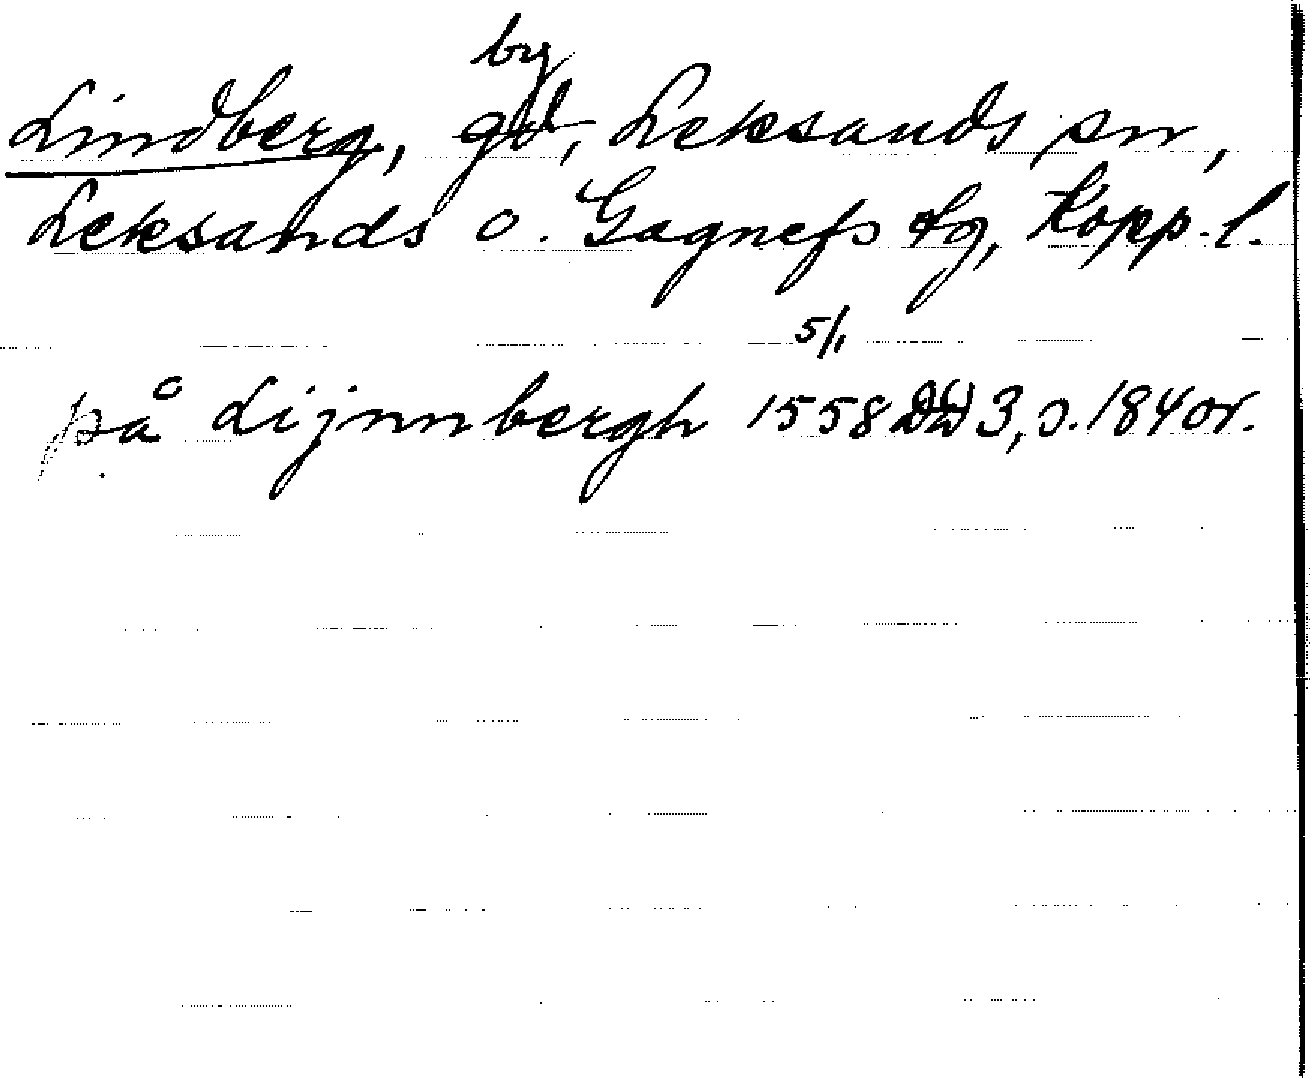 by
Lindberg, gd, Leksands sn,
Leksands o. Gagnefs tg, Kopp. l.
5/1
på Lijnnbergh 1558 DD 3, s. 184 or.